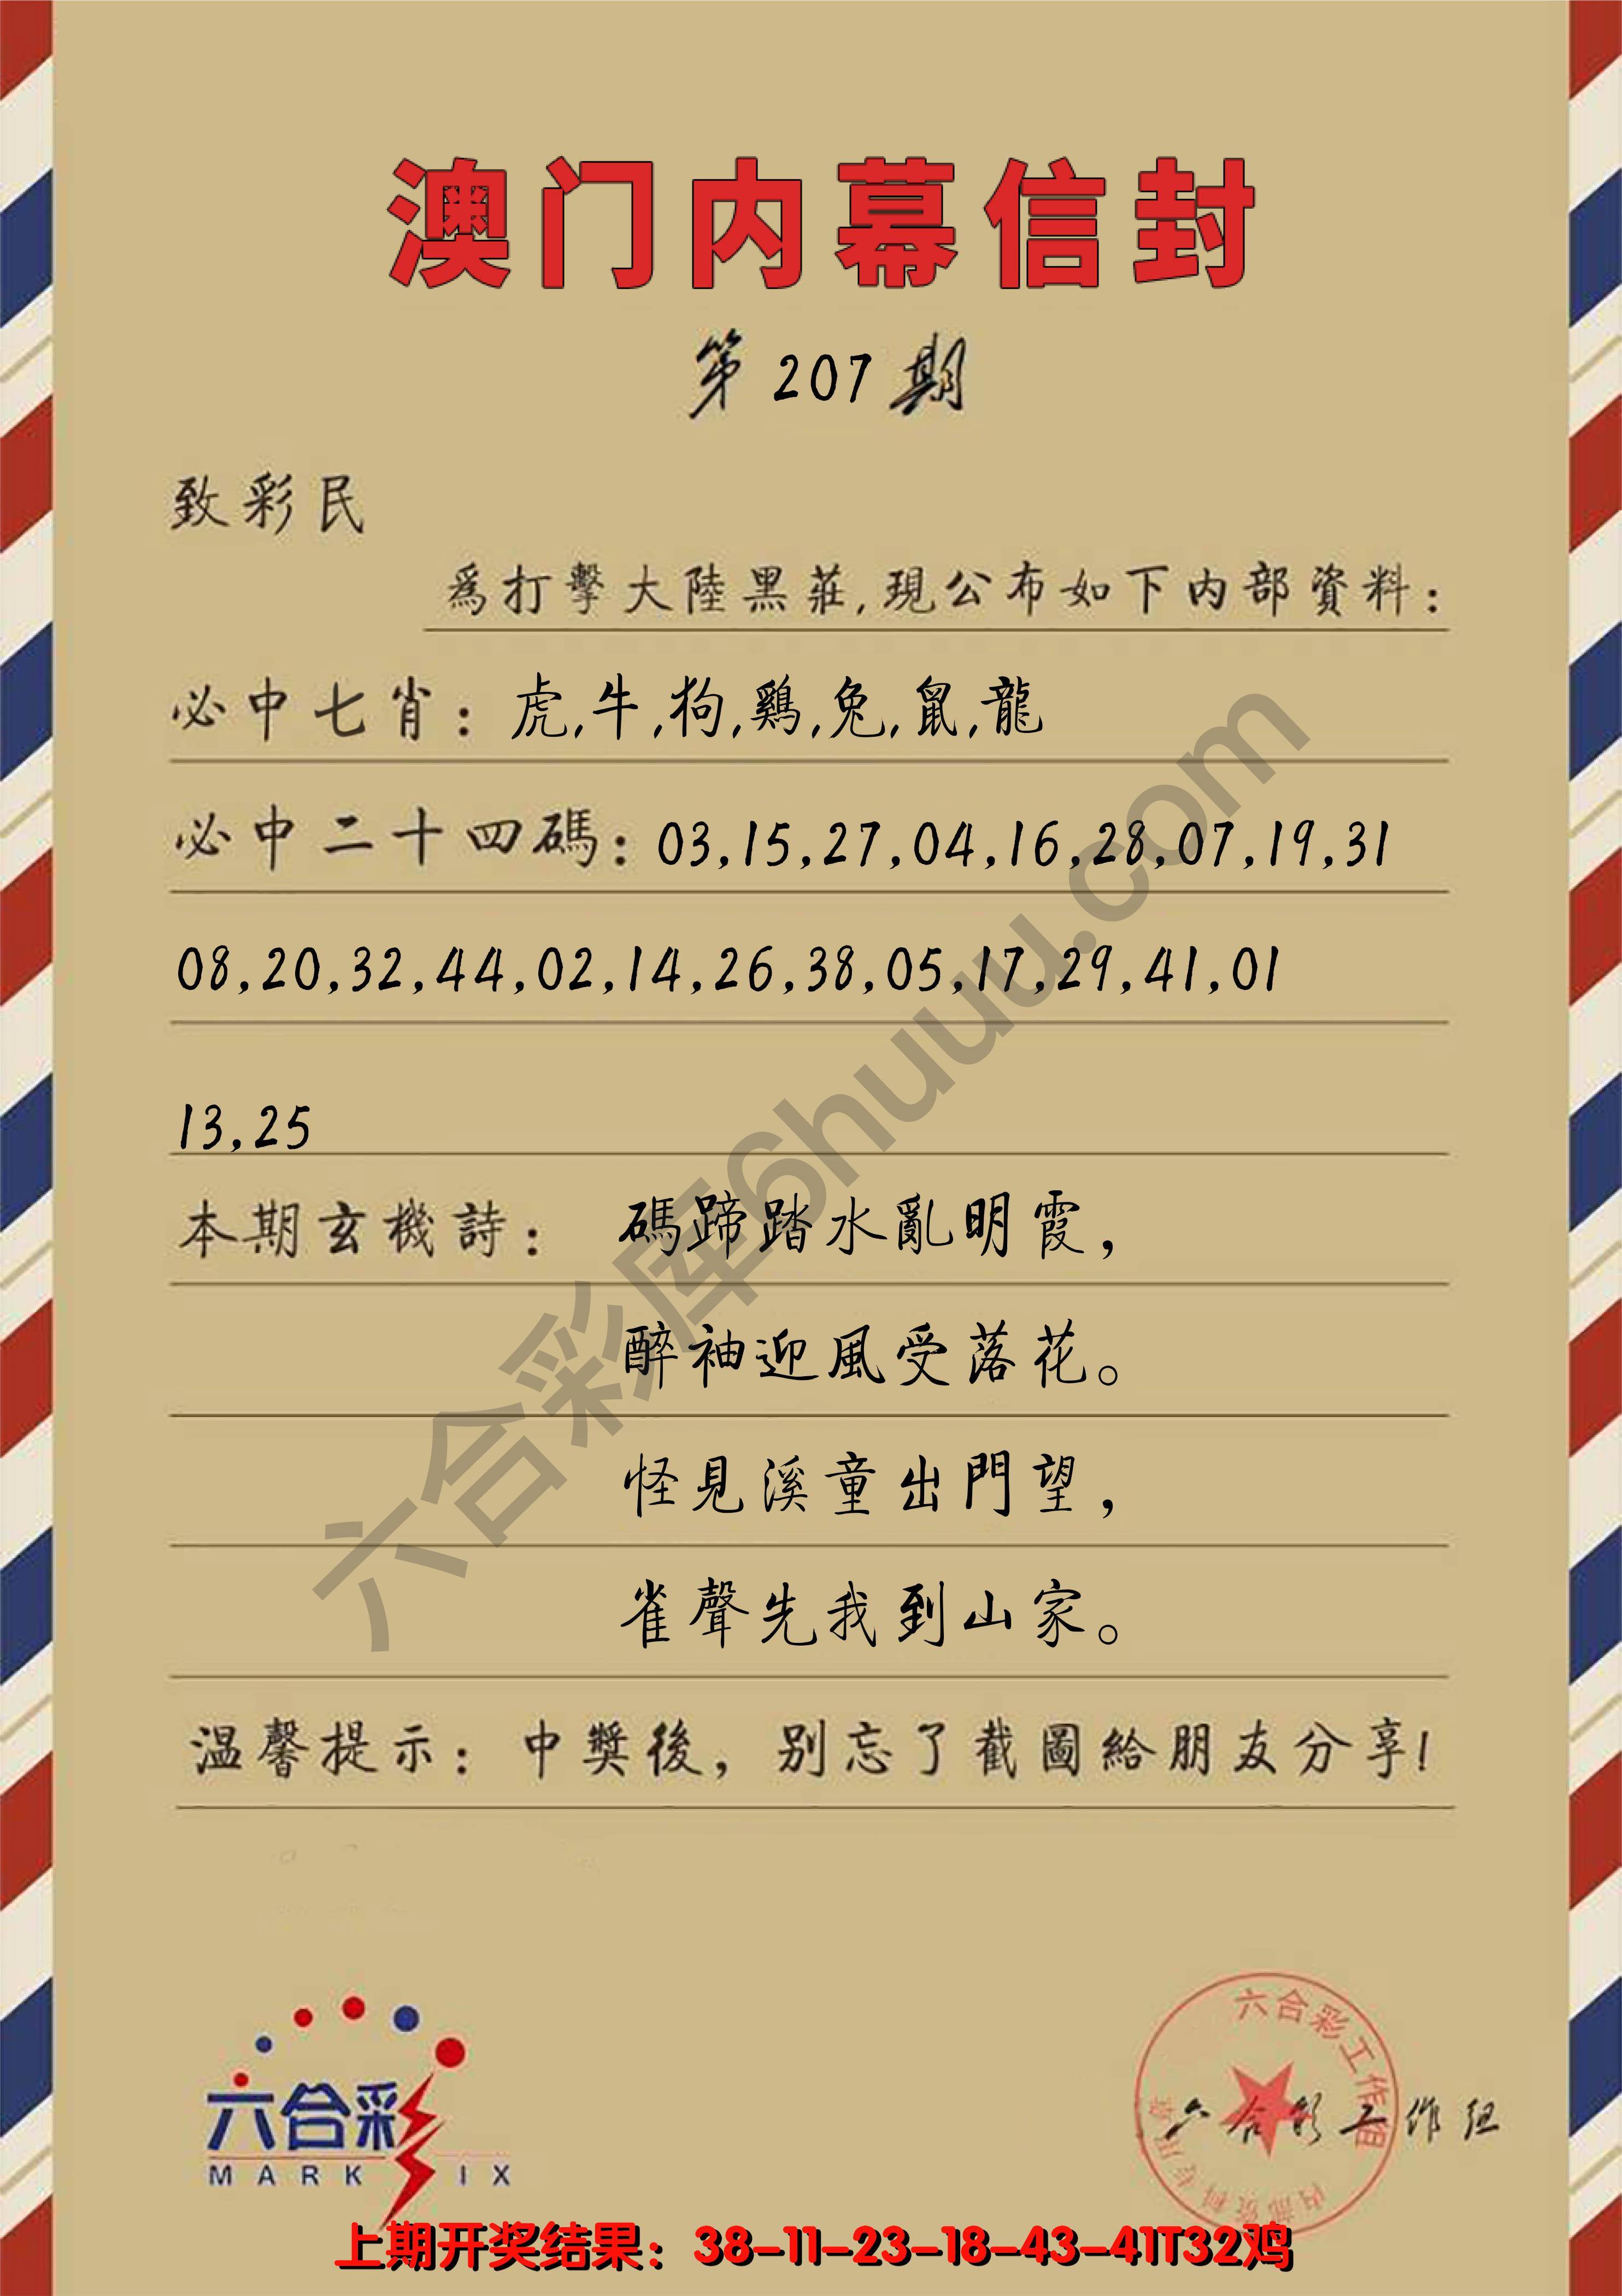 澳门内幕信封
第 207 期
致彩民
爲打擊大陸黑莊,現公布如下内部資料：
必中七肖：虎,牛,狗,鷄,兔,鼠,龍
必中二十四碼：03,15,27,04,16,28,07,19,31
08,20,32,44,02,14,26,38,05,17,29,41,01
13,25
本期玄機詩： 碼蹄踏水亂明霞，
醉袖迎風受落花。
怪見溪童出門望，
雀聲先我到山家。
温馨提示：中獎後，别忘了截圖給朋友分享!
六合彩库6huuu.com
六合彩
MARK IX
六合彩工作组
内部资料专用章
六合彩工作组
上期开奖结果：38-11-23-18-43-41T32鸡